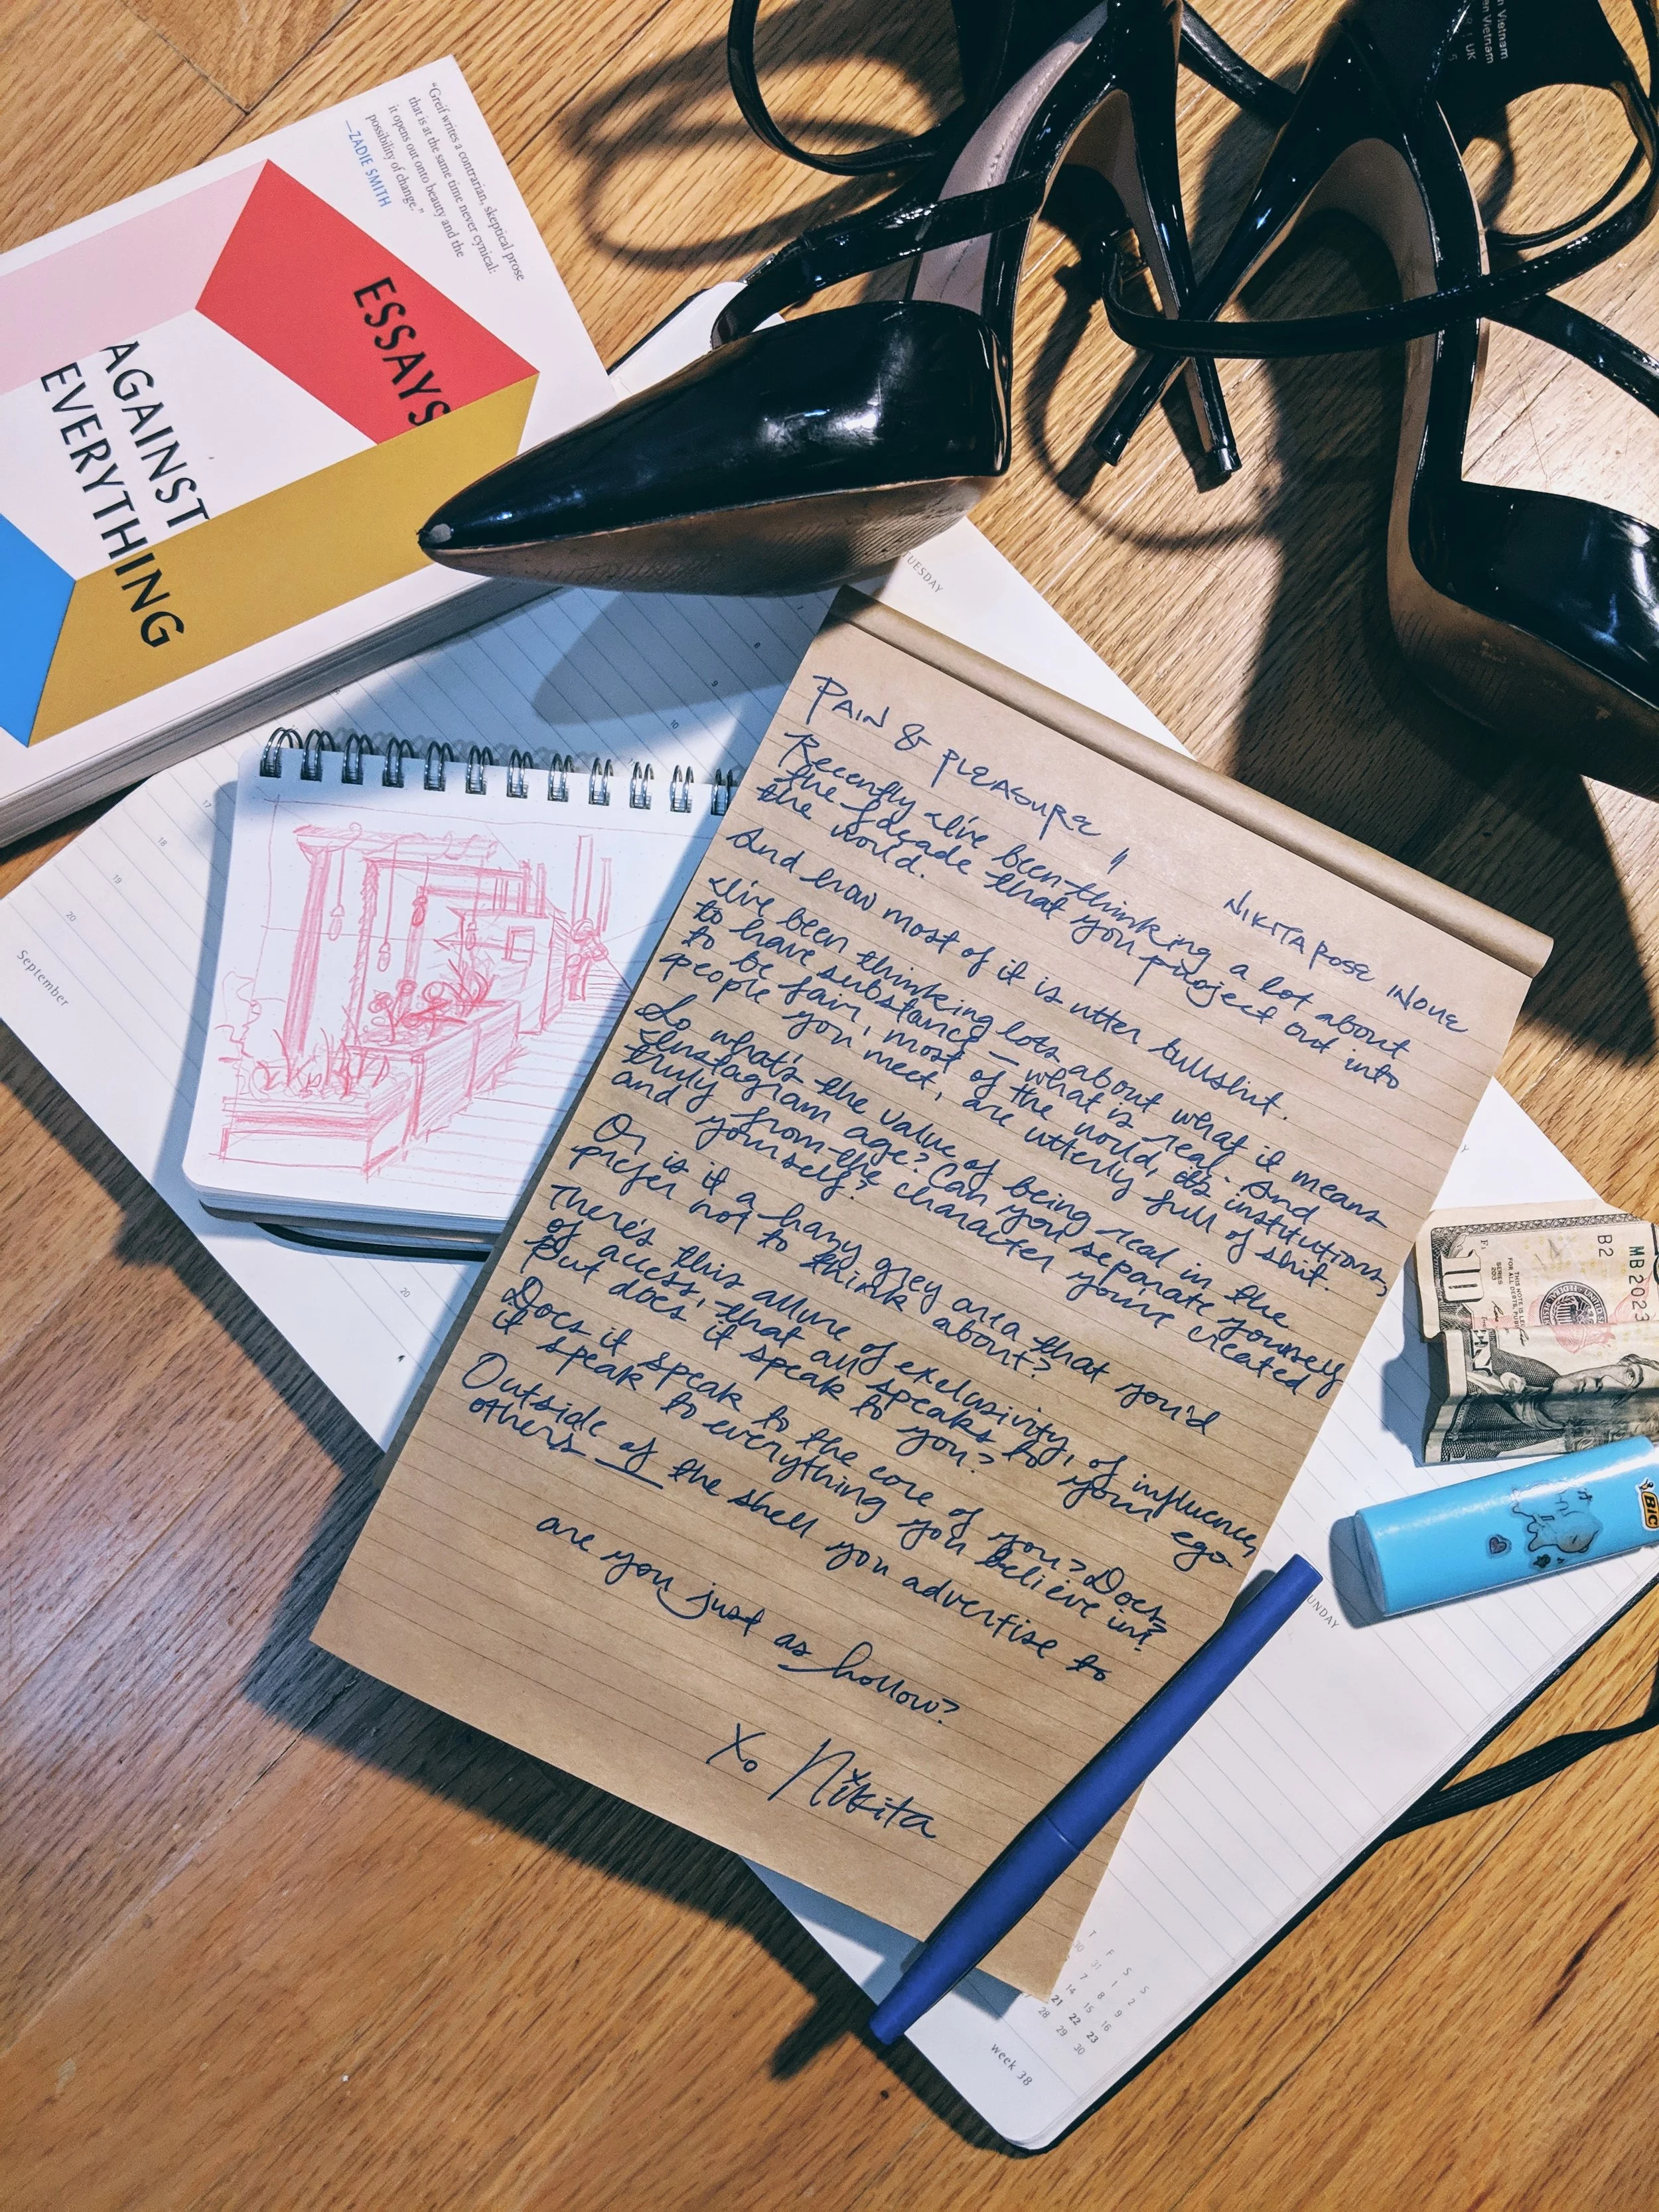 "Greif writes a contrarian, skeptical prose
that is at the same time never cynical:
it opens out onto beauty and the
possibility of change."
—ZADIE SMITH
ESSAYS
AGAINST
EVERYTHING
in Vietnam
en Vietnam
UK
5
TUESDAY
7
8
9
10
17
18
19
20
September
20
PAIN & PLEASURE //
NIKITA ROSE INOUE
Recently I've been thinking a lot about
the facade that you project out into
the world.
And how most of it is utter bullshit.
I've been thinking lots about what it means
to have substance – what is real. And
to be fair, most of the world, its institutions,
people you meet, are utterly full of shit.
So what's the value of being real in the
Instagram age? Can you separate yourself
truly from the character you've created
and yourself?
Or is it a hazy grey area that you'd
prefer not to think about?
There's this allure of exclusivity, of influence,
of access, that all speaks to your ego.
But does it speak to you?
Does it speak to the core of you? Does
it speak to everything you believe in?
Outside of the shell you advertise to
others —
are you just as hollow?
Xo Nikita
10
B2
MB2023
SERIES
2013
THIS NOTE IS LEGAL TENDER
FOR ALL DEBTS, PUBLIC
BIC
SUNDAY
T F S S
30 31 1 2
7 8 9
14 15 16
21 22 23
28 29 30
week 38